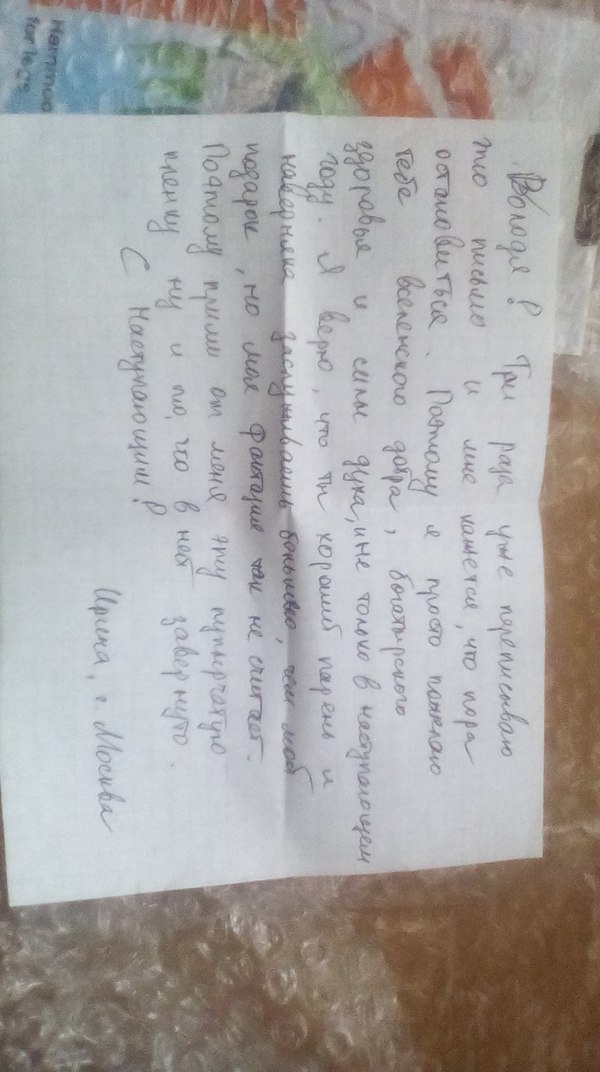 Володя! Три раза уже переписываю
это письмо и мне кажется, что пора
остановиться. Поэтому я просто пожелаю
тебе вселенского добра, богатырского
здоровья и силы духа, и не только в наступающем
году. Я верю, что ты хороший парень и
наверняка заслуживаешь большего, чем мой
подарок, но моя фантазия так не считает.
Поэтому прими от меня эту пупырчатую
пленку ну и то, что в ней завернуто.
С наступающим!
Ирина, г. Москва